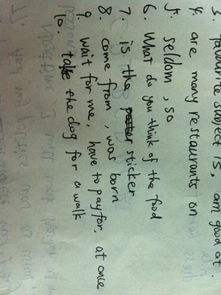 3. favourite ... is, am good at
4. are many restaurants on
5. seldom, so
6. What do you think of the food
7. is the sticker
8. come from, was born
9. wait for me, have to pay for, at once
10. take the dog for a walk